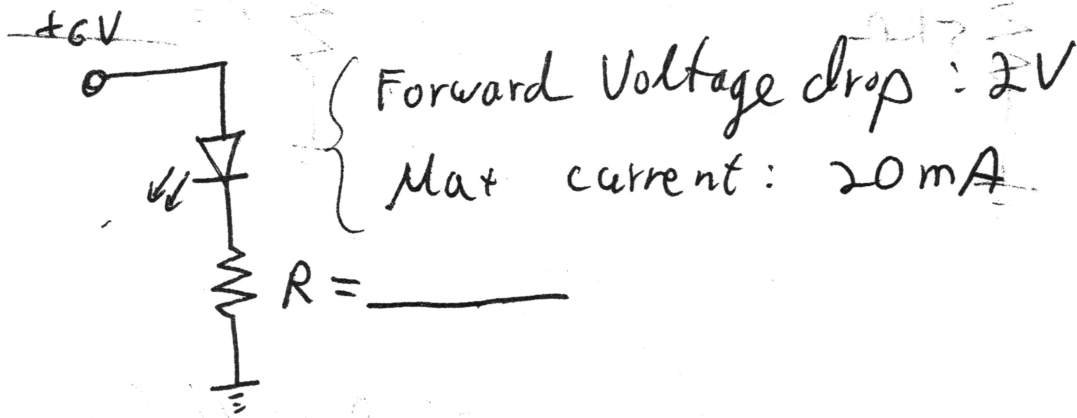 +6V
Forward Voltage drop : 2V
Max current : 20mA
R = ______